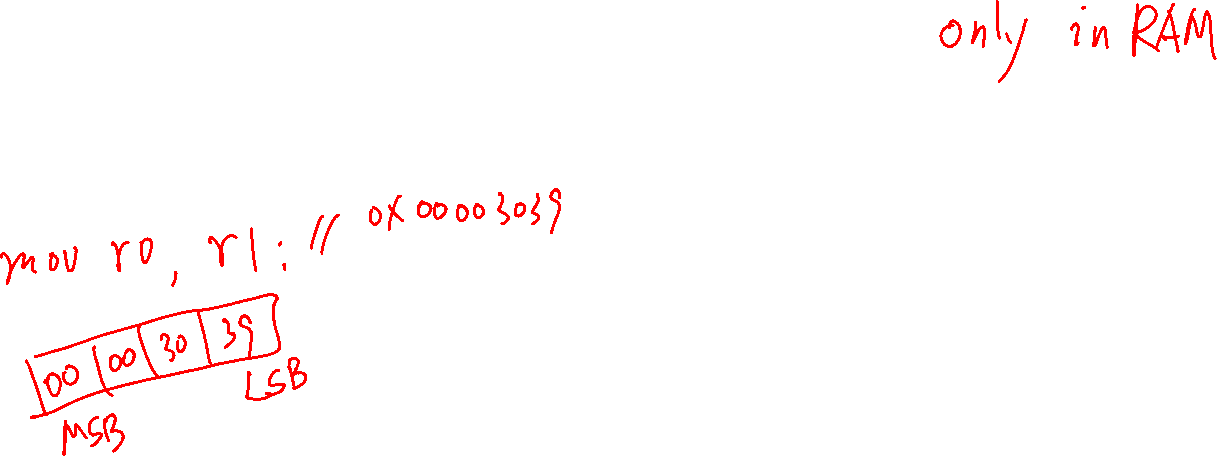 only in RAM
mov r0, r1; // 0X00003039
00 00 30 39
MSB LSB